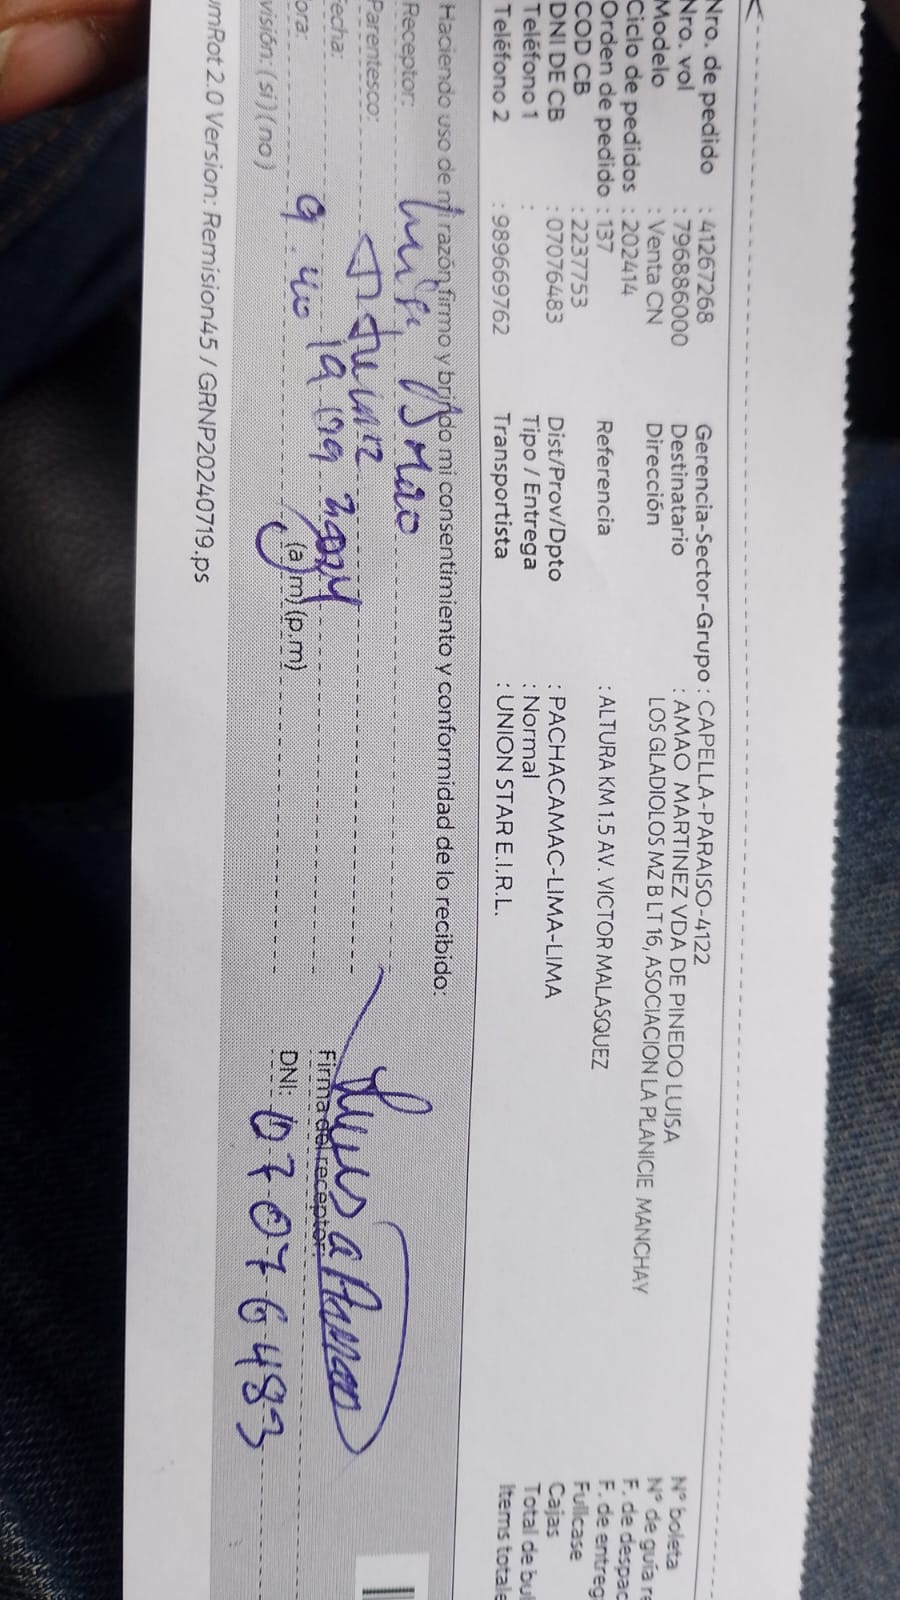 Nro. de pedido : 41267268 Gerencia-Sector-Grupo : CAPELLA-PARAISO-4122
Nro. vol : 796886000 Destinatario : AMAO MARTINEZ VDA DE PINEDO LUISA N° boleta
Modelo : Venta CN Dirección LOS GLADIOLOS MZ B LT 16, ASOCIACION LA PLANICIE MANCHAY N° de guía re
Ciclo de pedidos : 202414 F. de despac
Orden de pedido : 137 Referencia : ALTURA KM 1.5 AV. VICTOR MALASQUEZ F. de entreg
COD CB : 2237753 Fullcase
DNI DE CB : 07076483 Dist/Prov/Dpto : PACHACAMAC-LIMA-LIMA Cajas
Teléfono 1 : Tipo / Entrega : Normal Total de bul
Teléfono 2 : 989669762 Transportista : UNION STAR E.I.R.L. Items totale
Haciendo uso de mi razón firmo y brindo mi consentimiento y conformidad de lo recibido:
Receptor: Luisa Amao
Parentesco:
echa: 19 2024 Firma del receptor:
ora: 9:40 (a.m) (p.m) DNI: 07076483
visión: (si) (no)
mRot 2.0 Version: Remision45 / GRNP20240719.ps